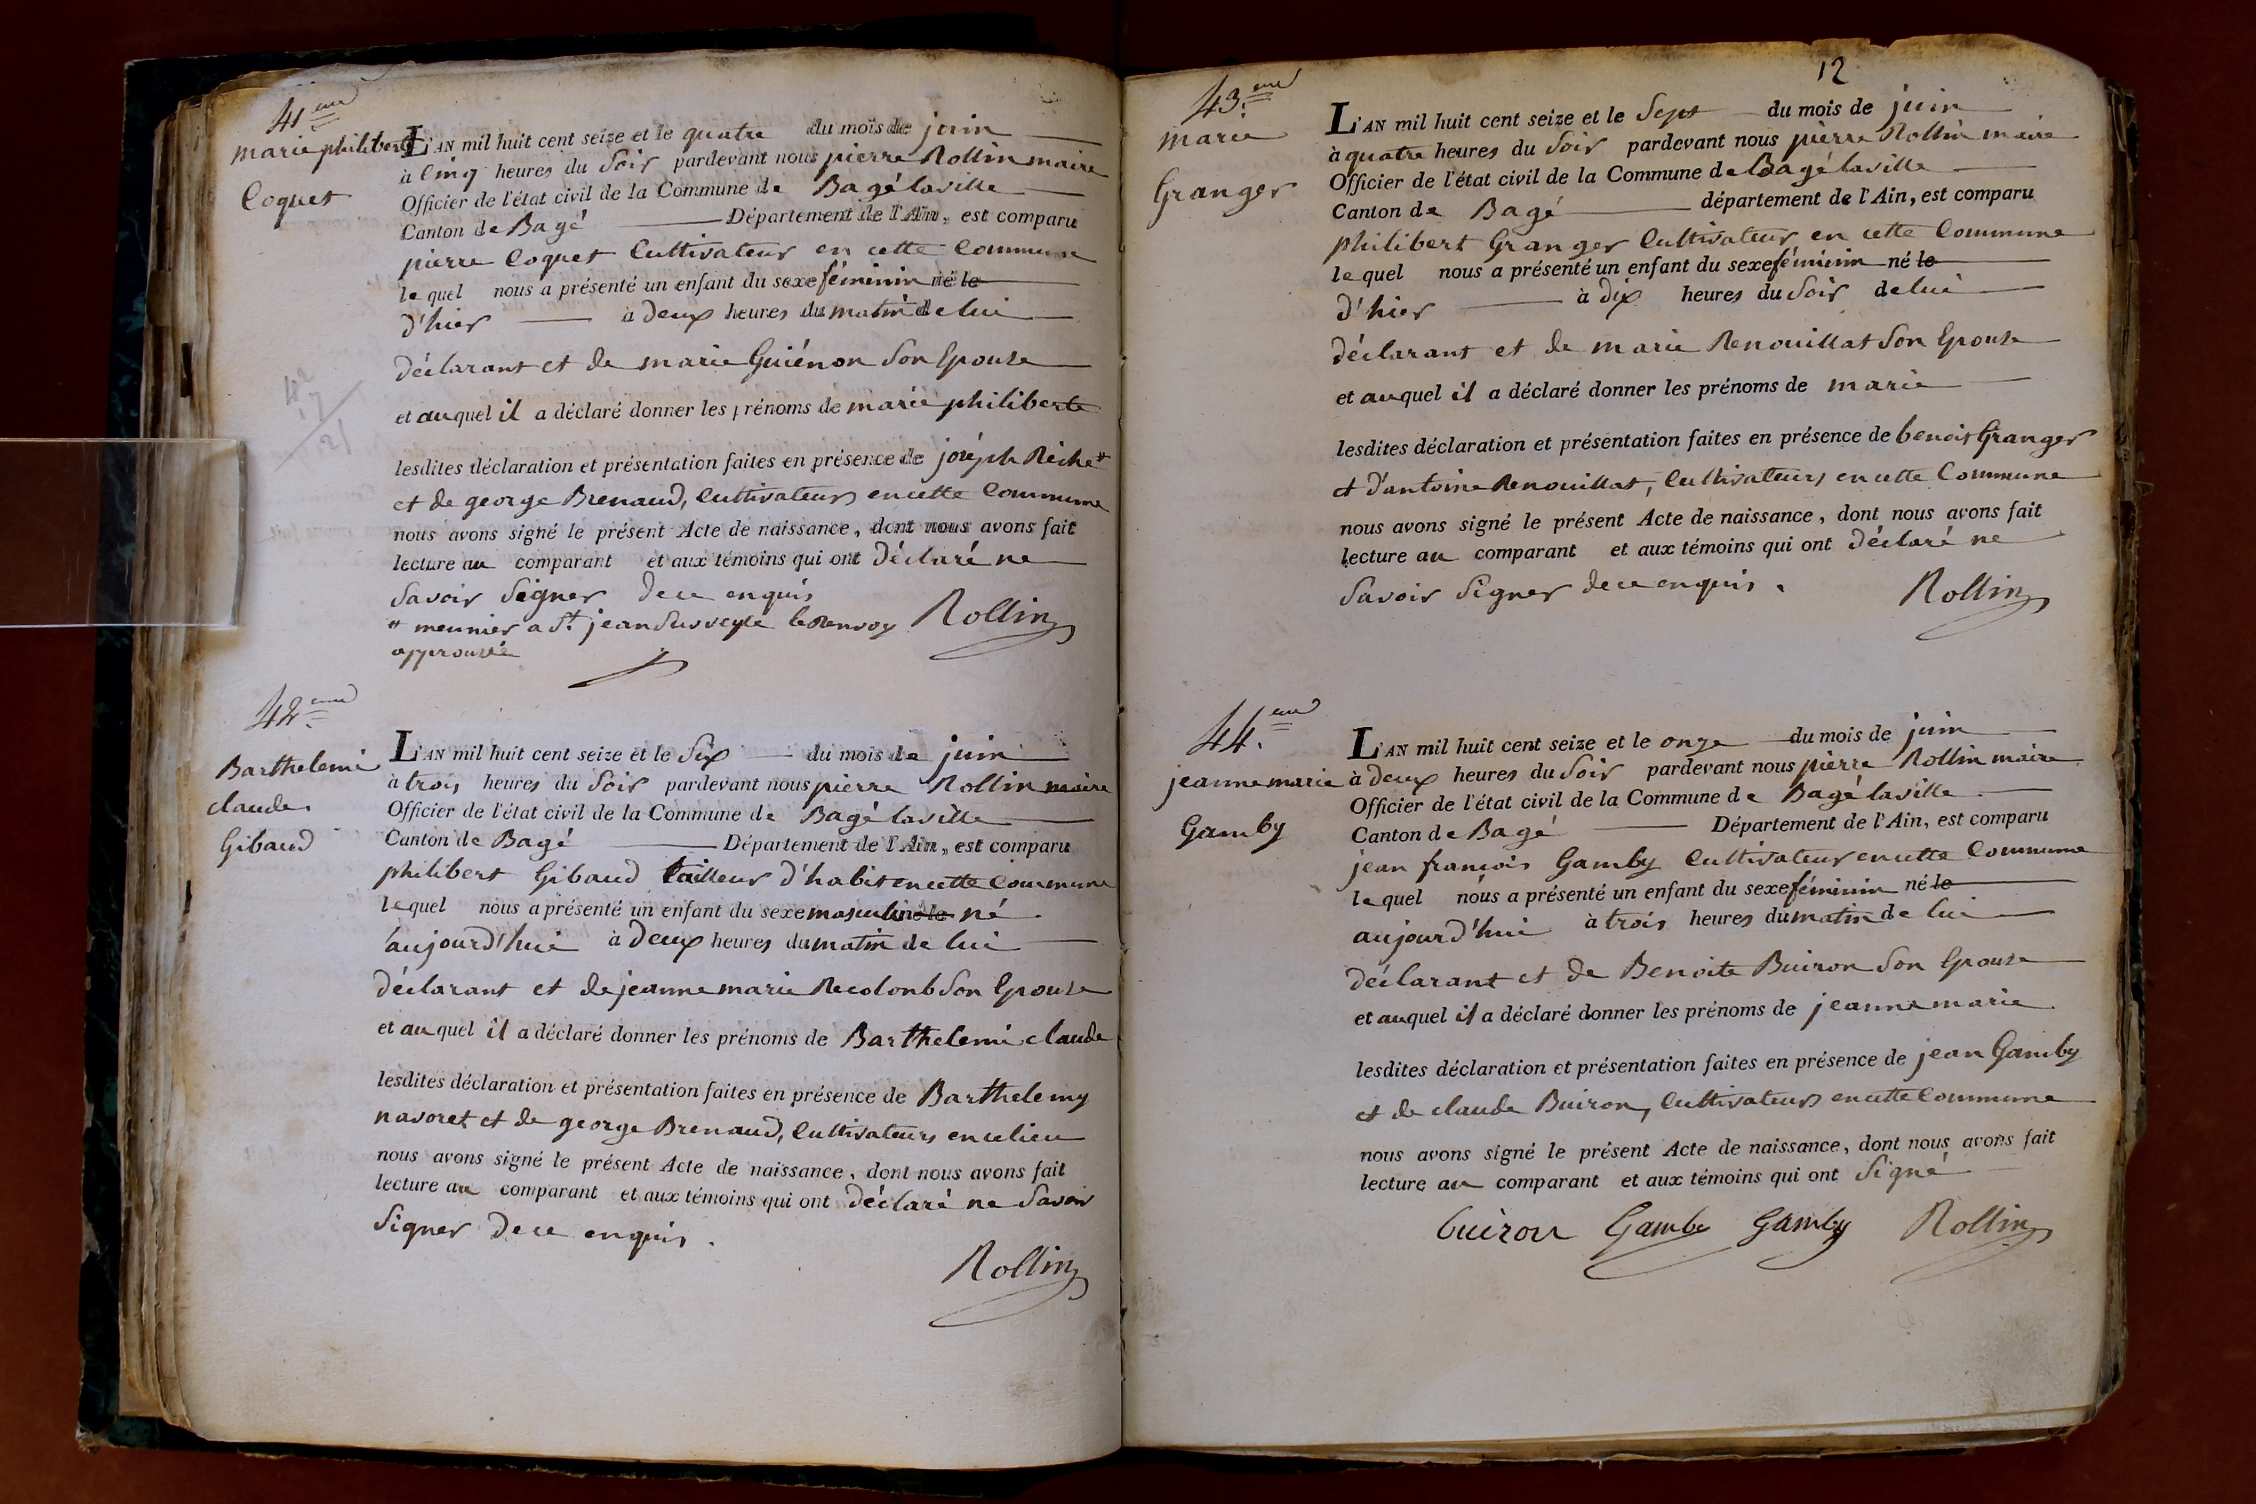 41eme
marie philiberte
Coquet
L'AN mil huit cent seize et le quatre du mois de juin
à cinq heures du Soir pardevant nous pierre Rollin maire
Officier de l'état civil de la Commune de Bagé laville
Canton de Bagé Département de l'Ain, est comparu
pierre Coquet Cultivateur en cette Commune
le quel nous a présenté un enfant du sexe féminin né le
d'hier à deux heures du matin de lui
déclarant et de marie Guiénon Son Epouse
et auquel il a déclaré donner les prénoms de marie philiberte
lesdites déclaration et présentation faites en présence de joséph Réche
et de george Brenaud, Cultivateurs en cette Commune
nous avons signé le présent Acte de naissance, dont nous avons fait
lecture au comparant et aux témoins qui ont déclaré ne
Savoir Signer de ce enquis
meunier a St. jean Sur veyle le Renvoy Rollin
approuvé
42eme
Barthelemi
claude
Gibaud
L'AN mil huit cent seize et le Six du mois de juin
à trois heures du Soir pardevant nous pierre Rollin maire
Officier de l'état civil de la Commune de Bagé laville
Canton de Bagé Département de l'Ain, est comparu
philibert Gibaud tailleur d'habit en cette Commune
le quel nous a présenté un enfant du sexe masculin né le né
aujourd'hui à Deux heures du matin de lui
déclarant et de jeanne marie Recolonb Son Epouse
et auquel il a déclaré donner les prénoms de Barthelemi claude
lesdites déclaration et présentation faites en présence de Barthelemy
navoret et de george Brenaud, Cultivateurs en ce lieu
nous avons signé le présent Acte de naissance, dont nous avons fait
lecture au comparant et aux témoins qui ont déclaré ne Savoir
Signer de ce enquis.
Rollin
12
43.eme
marie
Granger
L'AN mil huit cent seize et le Sept du mois de juin
à quatre heures du Soir pardevant nous pierre Rollin maire
Officier de l'état civil de la Commune de Bagé laville
Canton de Bagé département de l'Ain, est comparu
philibert Granger Cultivateur en cette Commune
le quel nous a présenté un enfant du sexe féminin né le
d'hier à dix heures du Soir de lui
déclarant et de marie Renouillat Son Epouse
et auquel il a déclaré donner les prénoms de marie
lesdites déclaration et présentation faites en présence de benoit Granger
et d'antoine Renouillat, Cultivateurs en cette Commune
nous avons signé le présent Acte de naissance, dont nous avons fait
lecture au comparant et aux témoins qui ont déclaré ne
Savoir Signer de ce enquis.
Rollin
44.eme
jeanne marie
Gamby
L'AN mil huit cent seize et le onze du mois de juin
à deux heures du Soir pardevant nous pierre Rollin maire
Officier de l'état civil de la Commune de Bagé laville
Canton de Bagé Département de l'Ain, est comparu
jean françois Gamby Cultivateur en cette Commune
le quel nous a présenté un enfant du sexe féminin né le
aujourd'hui à trois heures du matin de lui
déclarant et de Benoite Buiron Son Epouse
et auquel il a déclaré donner les prénoms de jeanne marie
lesdites déclaration et présentation faites en présence de jean Gamby
et de claude Buiron, Cultivateurs en cette Commune
nous avons signé le présent Acte de naissance, dont nous avons fait
lecture au comparant et aux témoins qui ont Signé
buiron Gamby Gamby Rollin